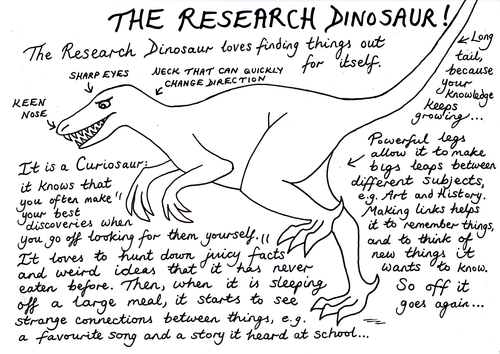 THE RESEARCH DINOSAUR!
The Research Dinosaur loves finding things out
for itself.
SHARP EYES
NECK THAT CAN QUICKLY
CHANGE DIRECTION
KEEN
NOSE
Long
tail,
because
your
knowledge
keeps
growing...
Powerful legs
allow it to make
big leaps between
different subjects,
e.g. Art and History.
Making links helps
it to remember things,
and to think of
new things it
wants to know.
So off it
goes again...
It is a Curiosaur:
it knows that
you often make
your best
discoveries when
you go off looking for them yourself.
It loves to hunt down juicy facts
and weird ideas that it has never
eaten before. Then, when it is sleeping
off a large meal, it starts to see
strange connections between things, e.g.
a favourite song and a story it heard at school...